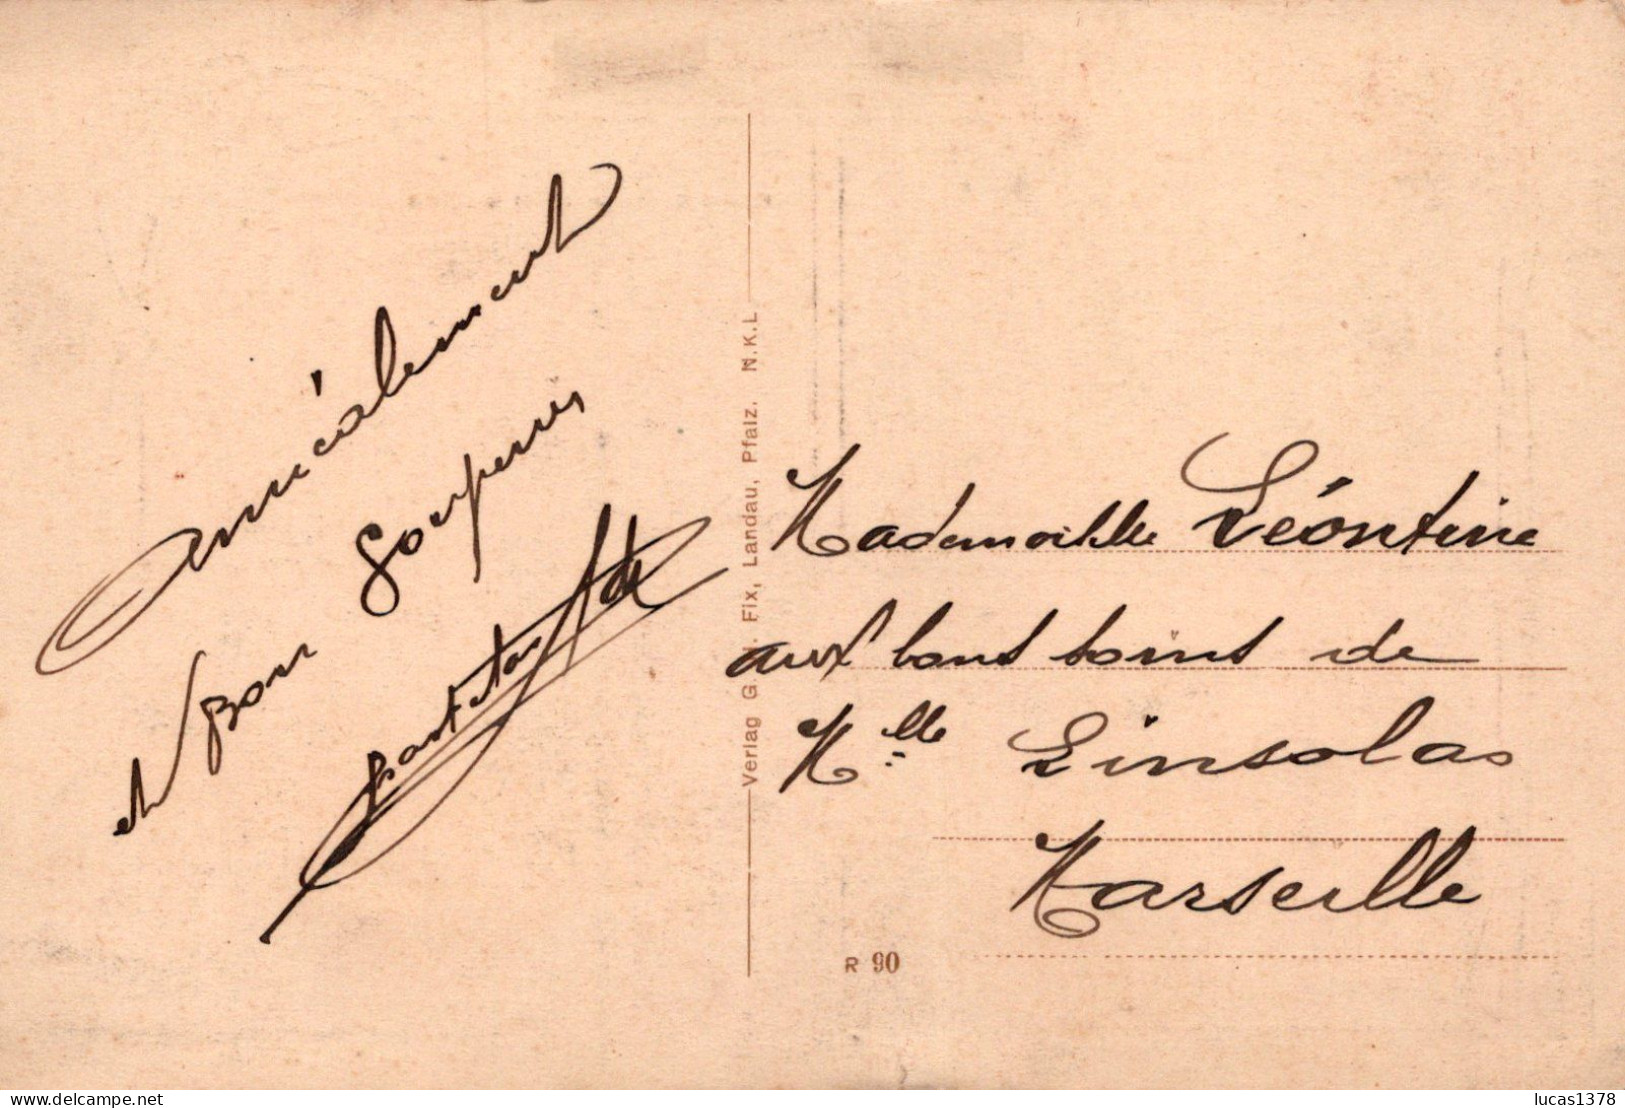 Amicalement
et Bon Souvenir
Verlag G. Fix, Landau, Pfalz. N.K.L
Mademoiselle Léontine
aux bons soins de
Mlle Linsolas
Marseille
R 90
www.delcampe.net
lucas1378